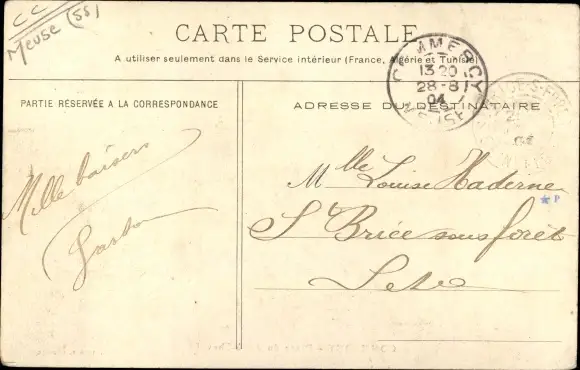 CC
Meuse (55)
CARTE POSTALE
A utiliser seulement dans le Service intérieur (France, Algérie et Tunisie)
COMMERCY
13 20
28-8
04
MEUSE
PARTIE RÉSERVÉE A LA CORRESPONDANCE
ADRESSE DU DESTINATAIRE
Mille baisers
Mlle Louise Haderne
P
St Brice sous forêt